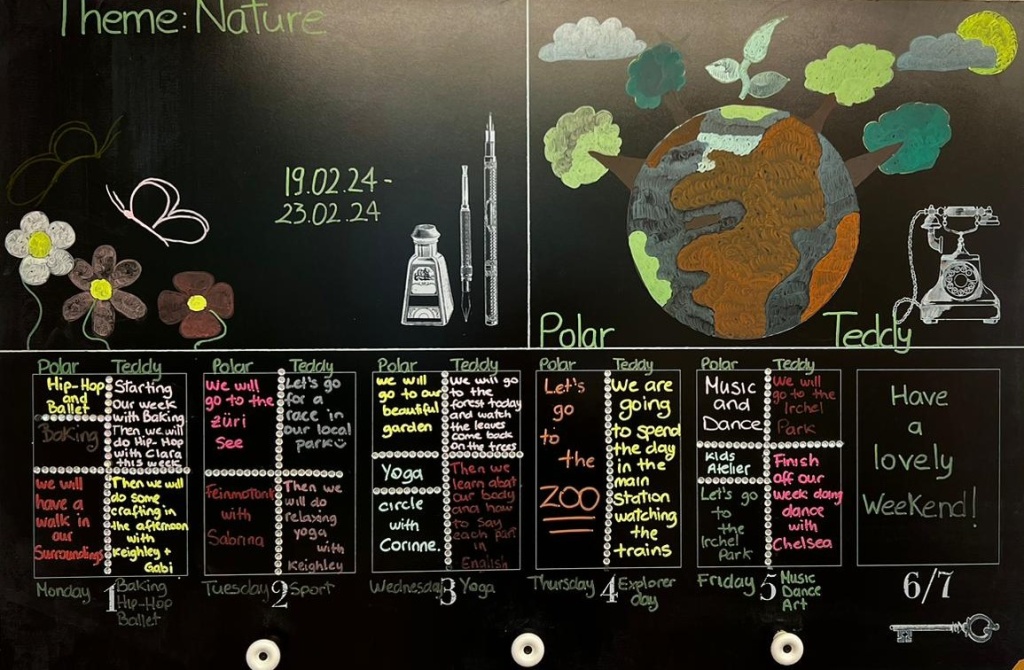 Theme: Nature
19.02.24 -
23.02.24
Polar
Teddy
Polar
Hip-Hop
and
Ballet
Baking
We will
have a
walk in
our
Surroundings
Teddy
Starting
Our week
with Baking
Then we will
do Hip-Hop
with Clara
this week
Then we will
do some
crafting in
the afternoon
with
Keighley +
Gabi
Monday
1
Baking
Hip-Hop
Ballet
Polar
We will
go to the
züri
See
Feinmotorik
with
Sabrina
Teddy
Let's go
for a
race in
our local
park
Then we
will do
relaxing
yoga
with
Keighley
Tuesday
2
Sport
Polar
we will
go to our
beautiful
garden
Yoga
circle
with
Corinne.
Teddy
We will go
to the
forest today
and watch
the leaves
come back
on the trees
Then we
learn abat
our body
and how
to say
each part
in
English
Wednesday
3
Yoga
Polar
Let's
go
to
the
ZOO
Teddy
We are
going
to spend
the day
in the
main
station
watching
the
trains
Thursday
4
Explorer
day
Polar
Music
and
Dance
Kids
Atelier
Let's go
to
the
Irchel
Park
Teddy
We will
go to the
Irchel
Park
Finish
off our
week doing
dance
with
Chelsea
Friday
5
Music
Dance
Art
Have
a
lovely
Weekend!
6/7